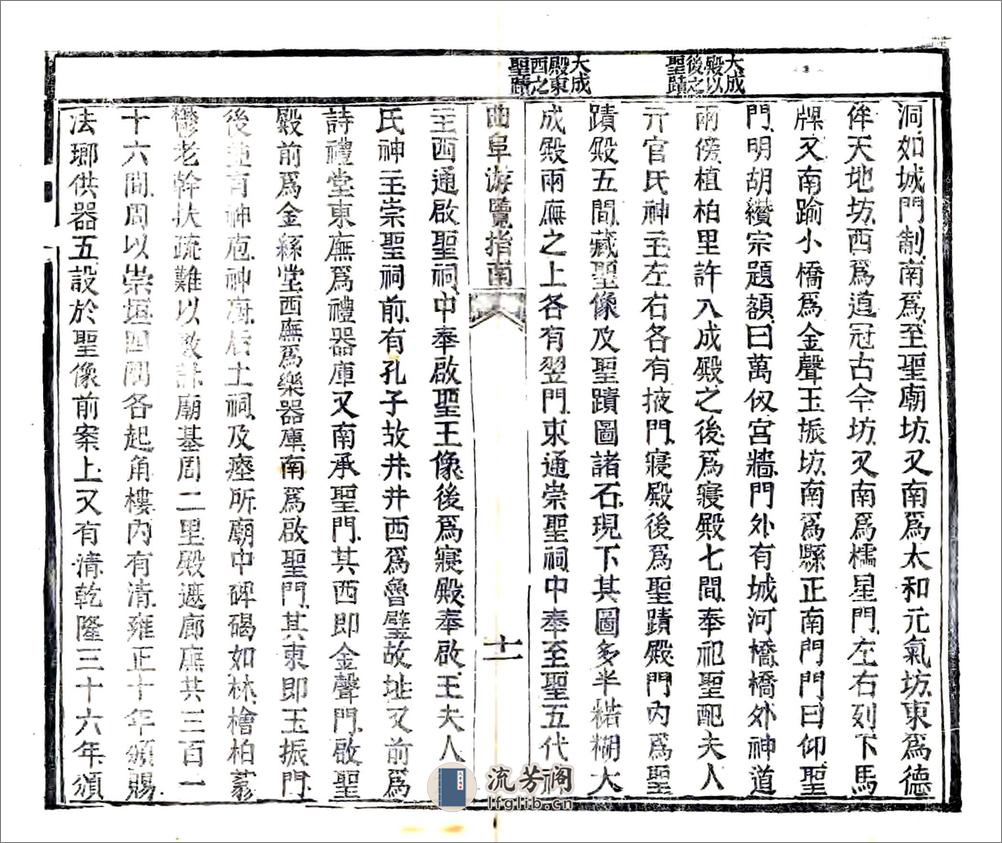 大成
殿以
後之
聖蹟
大成
殿東
西之
聖蹟
洞如城門制南爲至聖廟坊又南爲太和元氣坊東爲德
侔天地坊西爲道冠古今坊又南爲櫺星門左右列下馬
牌又南踰小橋爲金聲玉振坊南爲縣正南門門曰仰聖
門明胡纘宗題額曰萬仭宮牆門外有城河橋橋外神道
兩傍植柏里許入成殿之後爲寢殿七間奉祀聖配夫人
亓官氏神主左右各有掖門寢殿後爲聖蹟殿門內爲聖
蹟殿五間藏聖像及聖蹟圖諸石現下其圖多半楛糊大
成殿兩廡之上各有翌門東通崇聖祠中奉至聖五代
曲阜游覽指南
十一
主西通啟聖祠中奉啟聖王像後爲寢殿奉啟王夫人
氏神主崇聖祠前有孔子故井井西爲魯壁故址又前爲
詩禮堂東廡爲禮器庫又南承聖門其西即金聲門啟聖
殿前爲金絲堂西廡爲樂器庫南爲啟聖門其東即玉振門
後並有神庖神廚后土祠及瘞所廟中碑碣如林檜柏蓊
鬱老幹扶疏難以數計廟基周二里殿遞廊廡其三百一
十六間周以崇垣四隅各起角樓內有清雍正十年頒賜
法瑯供器五設於聖像前案上又有清乾隆三十六年頒
流芳阁
lfglib.cn